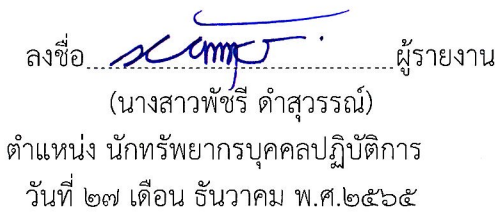 ลงชื่อ........................................ผู้รายงาน
(นางสาวพัชรี ดำสุวรรณ์)
ตำแหน่ง นักทรัพยากรบุคคลปฏิบัติการ
วันที่ ๒๗ เดือน ธันวาคม พ.ศ.๒๕๖๕